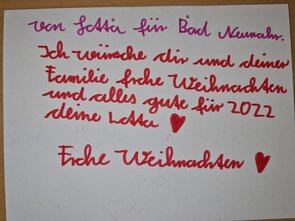 von Lotta für Bad Neunahr.
Ich wünsche dir und deiner
Familie frohe Weihnachten
und alles gute für 2022
deine Lotta
Frohe Weihnachten